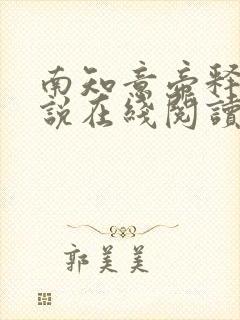 南知意帝釋
說在綫閱讀
郭美美